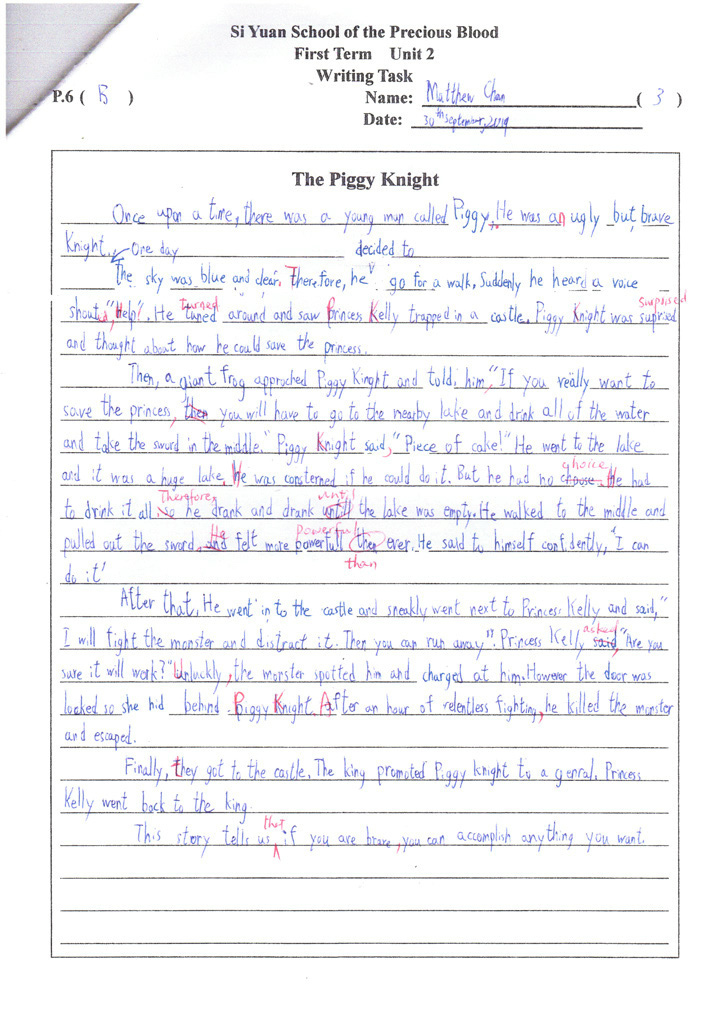 Si Yuan School of the Precious Blood
First Term Unit 2
Writing Task
P.6 ( B ) Name: Matthew Chan ( 3 )
Date: 30th September, 2019
The Piggy Knight
Once upon a time, there was a young man called Piggy. He was an ugly but brave
Knight. One day decided to
The sky was blue and clear. Therefore, he go for a walk, Suddenly he heard a voice
turned surprised
shouted, "Help". He tuned around and saw Princess Kelly trapped in a castle. Piggy Knight was supried
and thought about how he could save the princess.
Then, a giant frog approched Piggy Kinght and told him, "If you really want to
save the princess, then you will have to go to the nearby lake and drink all of the water
and take the sword in the middle." Piggy Knight said, "Piece of cake!" He went to the lake
choice
and it was a huge lake. He was consterned if he could do it. But he had no choose. He had
Therefore, until
to drink it all. So he drank and drank untill the lake was empty. He walked to the middle and
He powerful
pulled out the sword, and felt more powerfull then ever. He said to himself confidently, "I can
than
do it'
After that, He went in to the castle and sneakly went next to Princess Kelly and said,"
asked
I will fight the monster and distract it. Then you can run away". Princess Kelly said, "Are you
sure it will work?" Unluckly, the monster spotted him and charged at him. However the door was
locked so she hid behind Piggy Knight. After an hour of relentless fighting, he killed the monster
and escaped.
Finally, they got to the castle. The king promoted Piggy knight to a genral. Princess
Kelly went back to the king.
that
This story tells us if you are brave, you can accomplish anything you want.